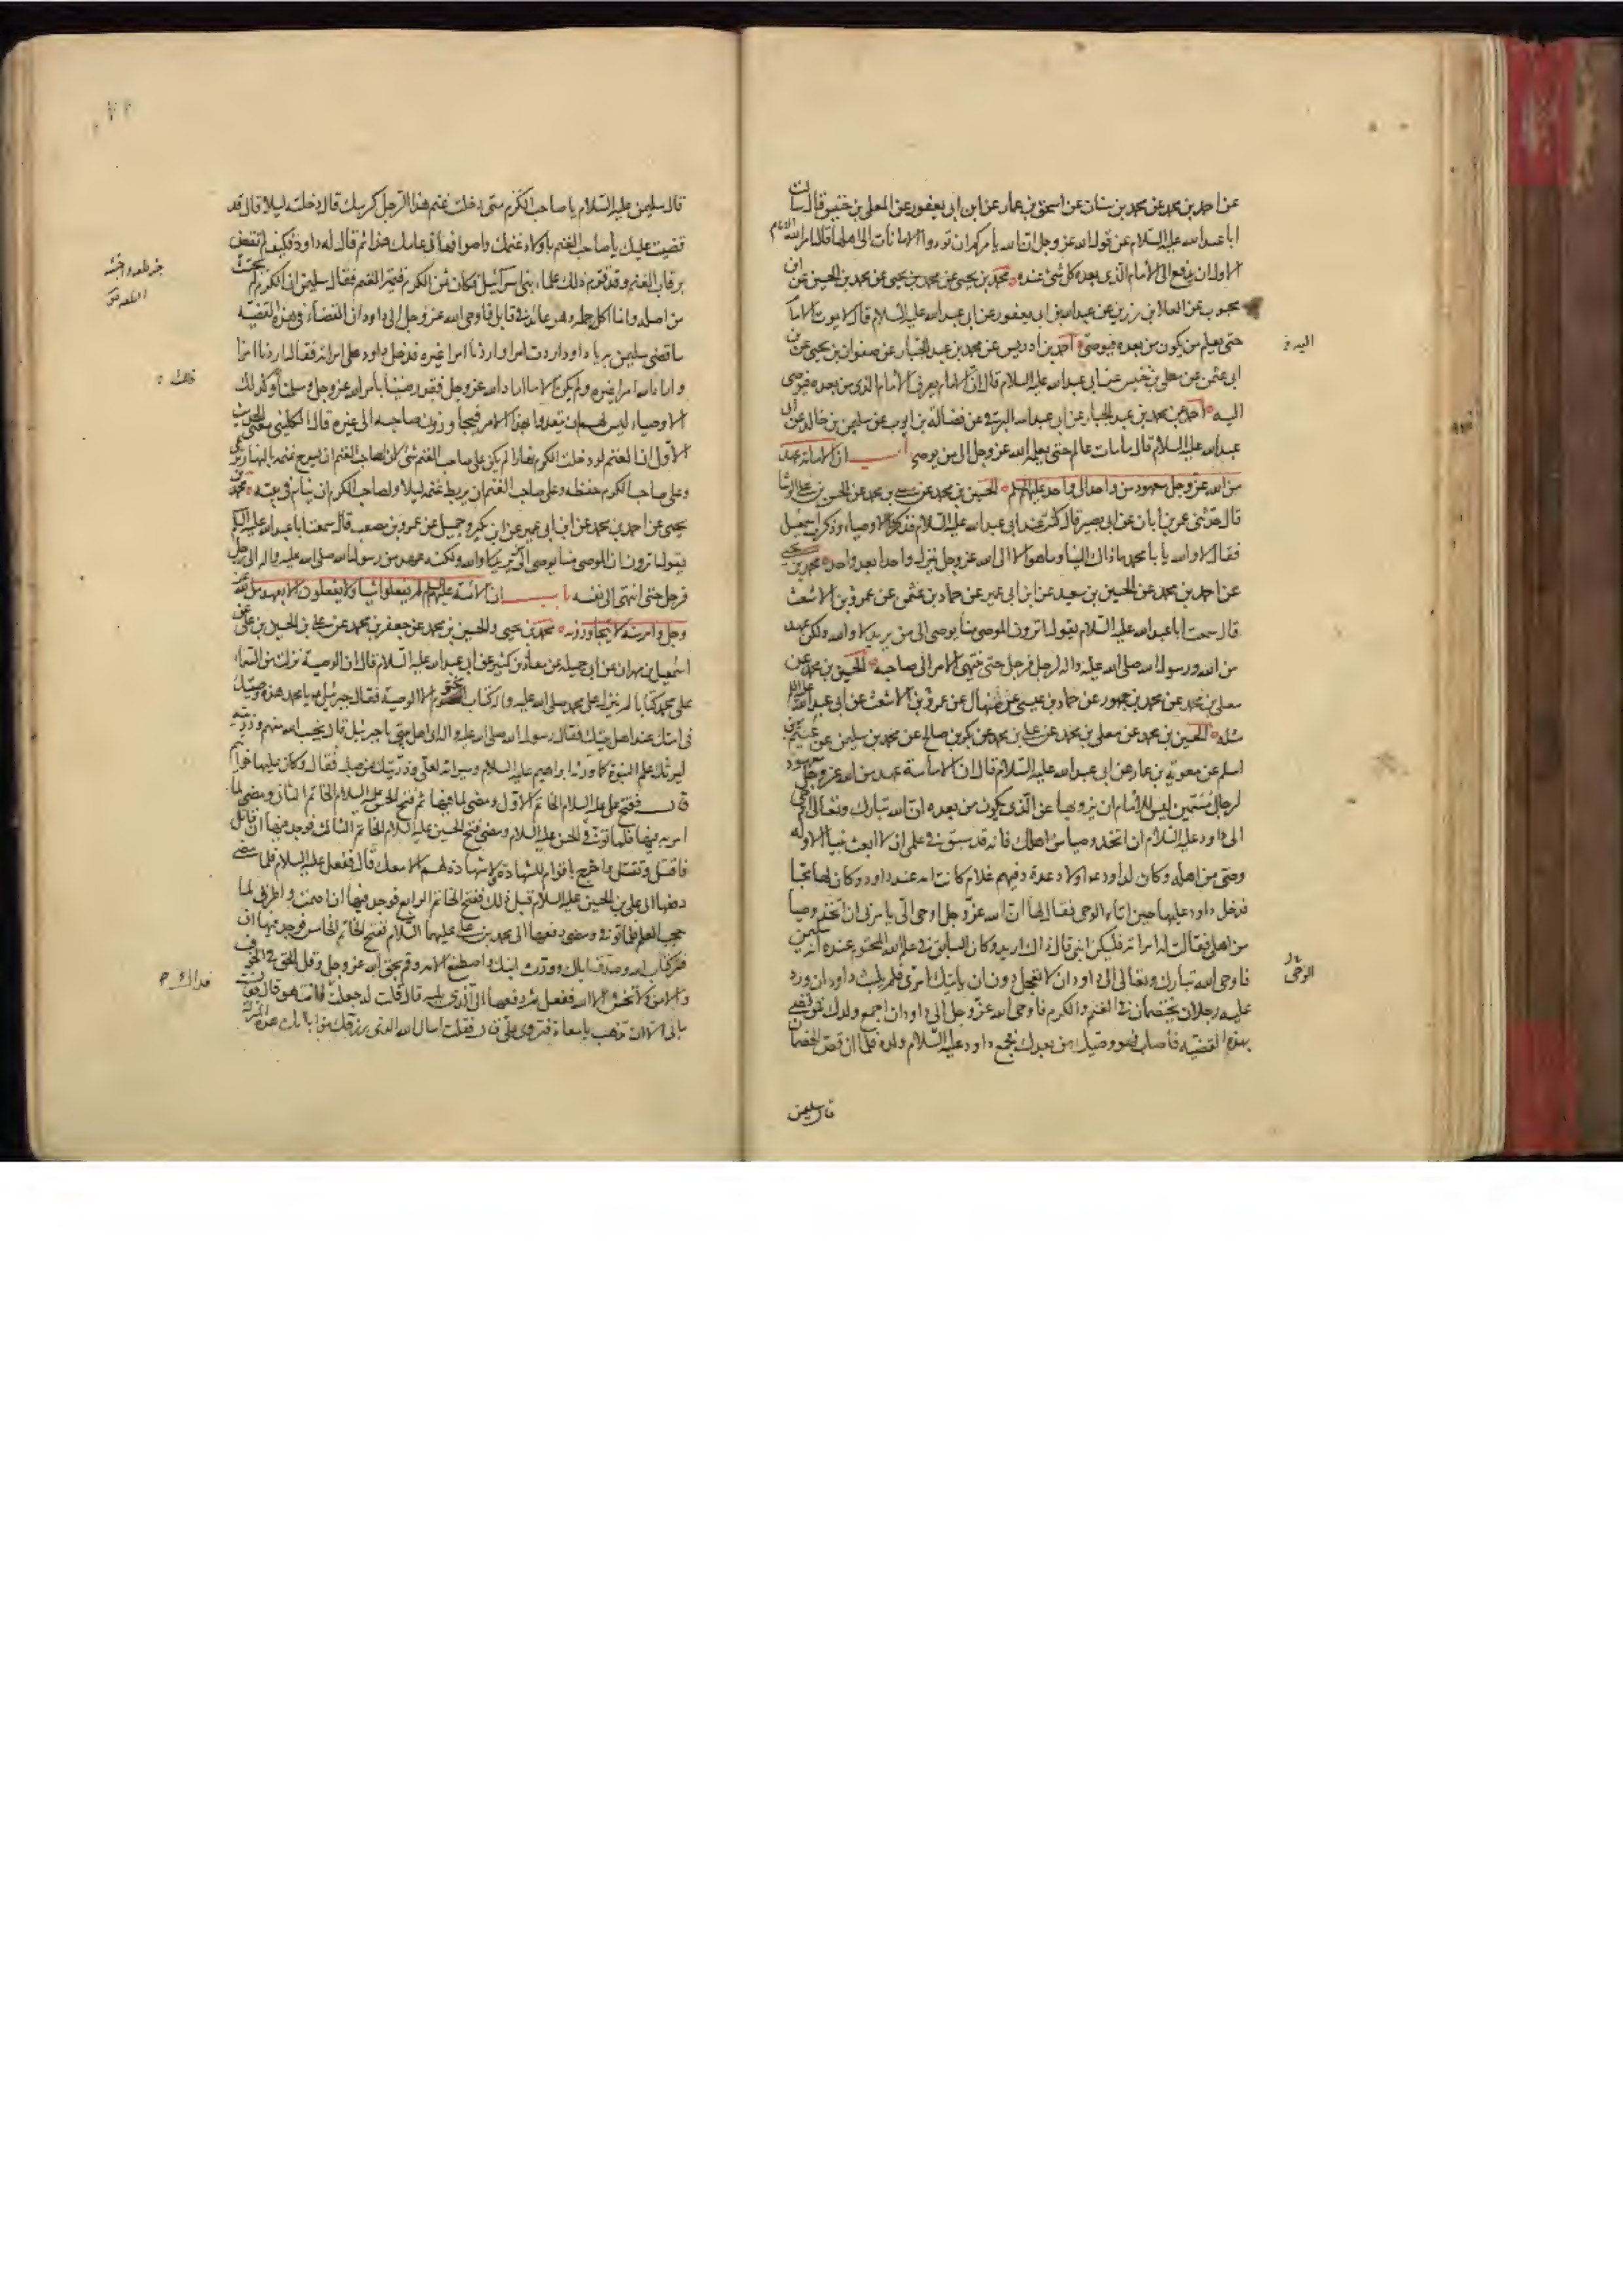 عن احمد بن محمد عن محمد بن سنان عن اسحق بن عمار عن ابن ابى يعفور عن المعلى بن خنيس قال سالت
ابا عبد الله عليه السلام عن قول الله عز وجل ان الله يامركم ان تودوا الامانات الى اهلها قال امر الله الامام
الاول ان يدفع الى الامام الذى بعده كل شئ عنده محمد بن يحيى عن محمد بن يحيى عن محمد بن الحسين عن ابن
محبوب عن العلا بن رزين عن عبد الله بن ابى يعفور عن ابى عبد الله عليه السلام قال لا يموت الامام
حتى يعلم من يكون من بعده فيوصى احمد بن ادريس عن محمد بن عبد الجبار عن صفوان بن يحيى عن ابن
ابى عثمن عن معلى بن خنيس عن ابى عبد الله عليه السلام قال ان الامام يعرف الامام الذى من بعده فيوصى
اليه احمد عن محمد بن عبد الجبار عن ابى عبد الله البرقى عن فضالة بن ايوب عن سليمن بن خالد عن ابى
عبد الله عليه السلام قال ما مات عالم حتى يعلمه الله عز وجل الى من يوصى باب ان الامامة عهد
من الله عز وجل معهود من واحد الى واحد عليهم السلم الحسين بن محمد عن معلى بن محمد عن الحسن بن على الوشا
قال حدثنى عمر بن ابان عن ابى بصير قال كنت عند ابى عبد الله عليه السلام فذكروا الاوصياء وذكرت اسمعيل
فقال لا والله يا با محمد ما ذاك الينا وما هو الا الى الله عز وجل ينزل واحدا بعد واحد محمد بن يحيى
عن احمد بن محمد عن الحسين بن سعيد عن ابن ابى عمير عن حماد بن عثمن عن عمرو بن الاشعث
قال سمعت ابا عبد الله عليه السلام يقول اترون الموصى منا يوصى الى من يريد لا والله ولكن عهد
من الله ورسوله صلى الله عليه واله لرجل فرجل حتى ينتهى الامر الى صاحبه الحسين بن محمد عن
معلى بن محمد عن محمد بن جمهور عن حماد بن عيسى عن منهال عن عمرو بن الاشعث عن ابى عبد الله عليه السلم
مثله الحسين بن محمد عن معلى بن محمد عن على بن محمد عن بكر بن صالح عن محمد بن سليمن عن عيثم بن
اسلم عن معوية بن عمار عن ابى عبد الله عليه السلام قال ان الامامة عهد من الله عز وجل معهود
لرجال مسمين ليس للامام ان يزويها عن الذى يكون من بعده ان الله تبارك وتعالى اوحى
الى داود عليه السلام ان اتخذ وصيا من اهلك فانه قد سبق فى علمى ان لا ابعث نبيا الا وله
وصى من اهله وكان لداود عه اولاد عدة وفيهم غلام كانت امه عند داود وكان لها محبا
فدخل داود عليها حين اتاه الوحى فقال لها ان الله عز وجل اوحى الى يامرنى ان اتخذ وصيا
من اهلى فقالت له امراته فليكن ابنى قال ذاك اريد وكان السابق فى علم الله المحتوم عنده انه سليمن
فاوحى الله تبارك وتعالى الى داود ان لا تعجل دون ان ياتيك امرى فلم يلبث داود ان ورد
عليه رجلان يختصمان فى الغنم والكرم فاوحى الله عز وجل الى داود ان اجمع ولدك فمن قضى
بهذه القضية فاصاب فهو وصيك من بعدك فجمع داود عليه السلام ولده فلما ان قص الخصمان
قال سليمن
قال سليمن عليه السلام يا صاحب الكرم متى دخلت غنم هذا الرجل كرمك قال دخلته ليلا قال قد
قضيت عليك يا صاحب الغنم باولاد غنمك واصوافها فى عامك هذا ثم قال له داود فكيف لم تقض
برقاب الغنم وقد قوم ذلك علماء بنى اسرائيل فكان ثمن الكرم قيمة الغنم فقال سليمن ان الكرم لم يجتث
من اصله وانما اكل حمله وهو عائد فى قابل فاوحى الله عز وجل الى داود ان القضاء فى هذه القضية
ما قضى سليمن به يا داود اردت امرا واردنا امرا غيره فدخل داود على امراته فقال اردنا امرا
واراد الله امرا غيره ولم يكن الا ما اراد الله عز وجل فقد رضينا بامر الله عز وجل وسلمنا وكذلك
الاوصياء ليس لهم ان يتعدوا بهذا الامر فيجاوزون صاحبه الى غيره قال الكلينى معنى الحديث
الاول ان الغنم لو دخلت الكرم نهارا لم يكن على صاحب الغنم شئ لان لصاحب الغنم ان يسرح غنمه بالنهار ترعى
وعلى صاحب الكرم حفظه وعلى صاحب الغنم ان يربط غنمه ليلا ولصاحب الكرم ان ينام فى بيته محمد بن
يحيى عن احمد بن محمد عن ابن ابى عمير عن ابن بكير وجميل عن عمرو بن مصعب قال سمعت ابا عبد الله عليه السلم
يقول اترون ان الموصى منا يوصى الى من يريد لا والله ولكنه عهد من رسول الله صلى الله عليه واله الى رجل
فرجل حتى انتهى الى نفسه باب ان الائمة عليهم السلم لم يفعلوا شيئا ولا يفعلون الا بعهد من الله عز
وجل وامر منه لا يتجاوزونه محمد بن يحيى والحسين بن محمد عن جعفر بن محمد عن على بن الحسين بن على عن
اسمعيل بن مهران عن ابى جميله عن معاذ بن كثير عن ابى عبد الله عليه السلام قال ان الوصية نزلت من السماء
على محمد كتابا لم ينزل على محمد صلى الله عليه واله كتاب مختوم الا الوصية فقال جبرئيل عه يا محمد هذه وصيتك
فى امتك عند اهل بيتك فقال رسول الله صلى الله عليه واله اى اهل بيتى يا جبرئيل قال نجيب الله منهم وذريته
ليرثك علم النبوة كما ورثه ابراهيم عليه السلام وميراثه لعلى وذريتك من صلبه فقال وكان عليها خواتيم
قال ففتح على عليه السلام الخاتم الاول ومضى لما فيها ثم فتح الحسن عليه السلام الخاتم الثانى ومضى لما
امر به فيها فلما توفى الحسن عليه السلام ومضى فتح الحسين عليه السلام الخاتم الثالث فوجد فيها ان قاتل
فاقتل وتقتل واخرج باقوام للشهادة لا شهادة لهم الا معك قال ففعل عليه السلام فلما مضى
دفعها الى على بن الحسين عليه السلام قبل ذلك ففتح الخاتم الرابع فوجد فيها ان اصمت واطرق لما
حجب العلم فلما توفى ومضى دفعها الى محمد بن على عليهما السلام ففتح الخاتم الخامس فوجد فيها ان
فسر كتاب الله وصدق اباك وورث ابنك واصطنع الامة وقم بحق الله عز وجل وقل الحق فى الخوف
والامن ولا تخش الا الله ففعل ثم دفعها الى الذى يليه قال قلت له جعلت فانت هو قال فقال
ما بى الا ان تذهب يا معاذ فتروى على قال فقلت اسال الله الذى رزقك من ابائك هذه المنزلة
فداك